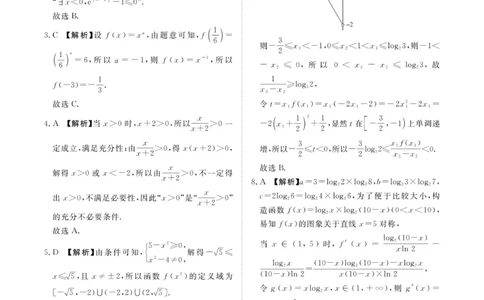 ∃x<0,eˣ−x−1≤0”.
故选 B.
3. C 【解析】设 f(x)=xᵃ,由题意可知,f(1/6)=
(1/6)ᵃ=6,所以 a=−1,则 f(x)=x⁻¹,所以
f(−3)=−1/3.
故选 C.
4. A 【解析】当 x>0 时,x+2>0,所以 x/(x+2)>0 一
定成立,满足充分性;由 x/(x+2)>0,得 x(x+2)>0,
解得 x>0 或 x<−2,所以由 x/(x+2)>0,不一定得
出 x>0,不满足必要性,因此“x>0”是“x/(x+2)>0”
的充分不必要条件.
故选 A.
5. D 【解析】由条件可知,{5−x²≥0, x²−4≠0, 解得−√5≤
x≤√5,且 x≠±2,所以函数 f(x²)的定义域为
[−√5,−2)∪(−2,2)∪(2,√5].
−2
则−3/2≤x₁<−1,0≤x₂<1<x₃≤log₂3,则−1<
−x₂≤0,所以 0<x₃−x₂≤log₂3,故
1/(x₃−x₂)≥log₃2,
令 t=x₁f(x₁)=x₁(−2x₁−2)=−2x₁²−2x₁=
−2(x₁+1/2)²+1/2,显然 t 在[−3/2,−1)上单调递
增,所以−3/2≤t<0,所以−3/2log₃2≤x₁f(x₁)/(x₃−x₂)<0.
故选 B.
8. A 【解析】a=3=log₂2×log₂8,b=log₂3×log₂7,
c=2log₂6=log₂4×log₂6,为了便于比较大小,构
造函数 f(x)=log₂x×log₂(10−x)(0<x<10),
易知 f(x)的图象关于直线 x=5对称,
当 x∈(1,5)时,f′(x)=log₂(10−x)/(xln 2)−
log₂x/((10−x)ln 2)=((10−x)log₂(10−x)−xlog₂x)/(x(10−x)×ln 2),
令 g(x)=xlog₂x,x∈(1,+∞),则 g′(x)=